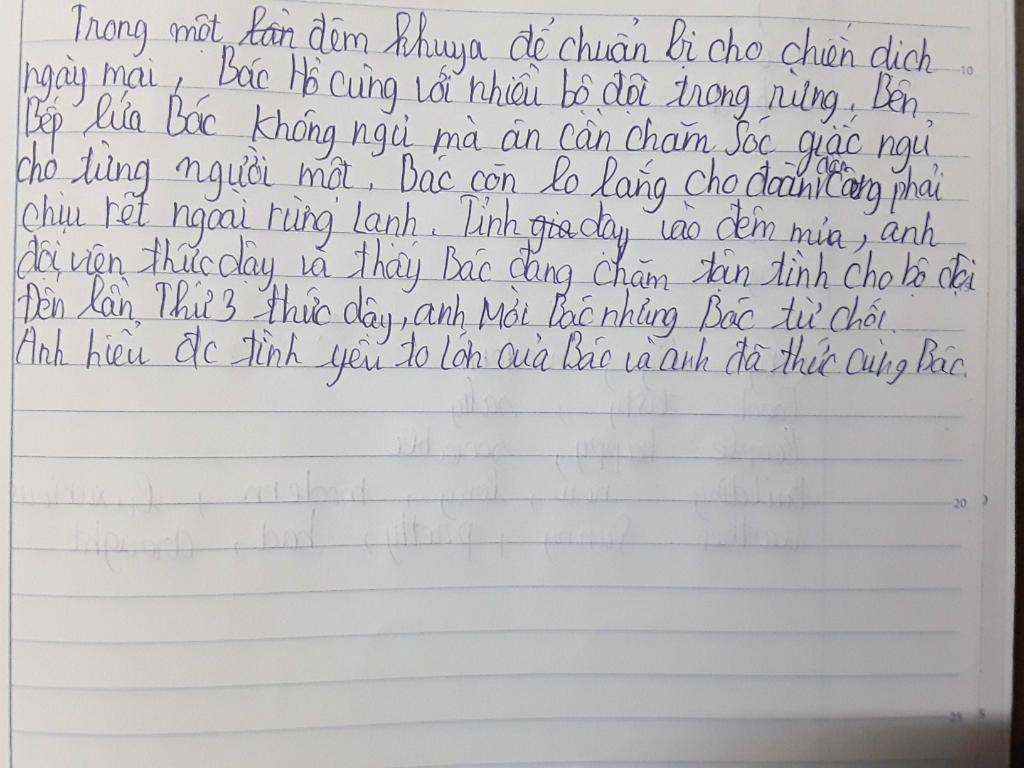 Trong một lần đêm khuya để chuẩn bị cho chiến dịch
ngày mai, Bác Hồ cùng với nhiều bộ đội trong rừng. Bên
Bếp lửa Bác không ngủ mà ân cần chăm sóc giấc ngủ
cho từng người một. Bác còn lo lắng cho đoàn dân công phải
chịu rét ngoài rừng lạnh. Tỉnh giấ dậy vào đêm mưa, anh
đội viên thức dậy và thấy Bác đang chăm tận tình cho bộ đội
Đến lần Thứ 3 thức dậy, anh Mời Bác nhưng Bác từ chối.
Anh hiểu đc tình yêu to lớn của Bác và anh đã thức cùng Bác.
10
20
25